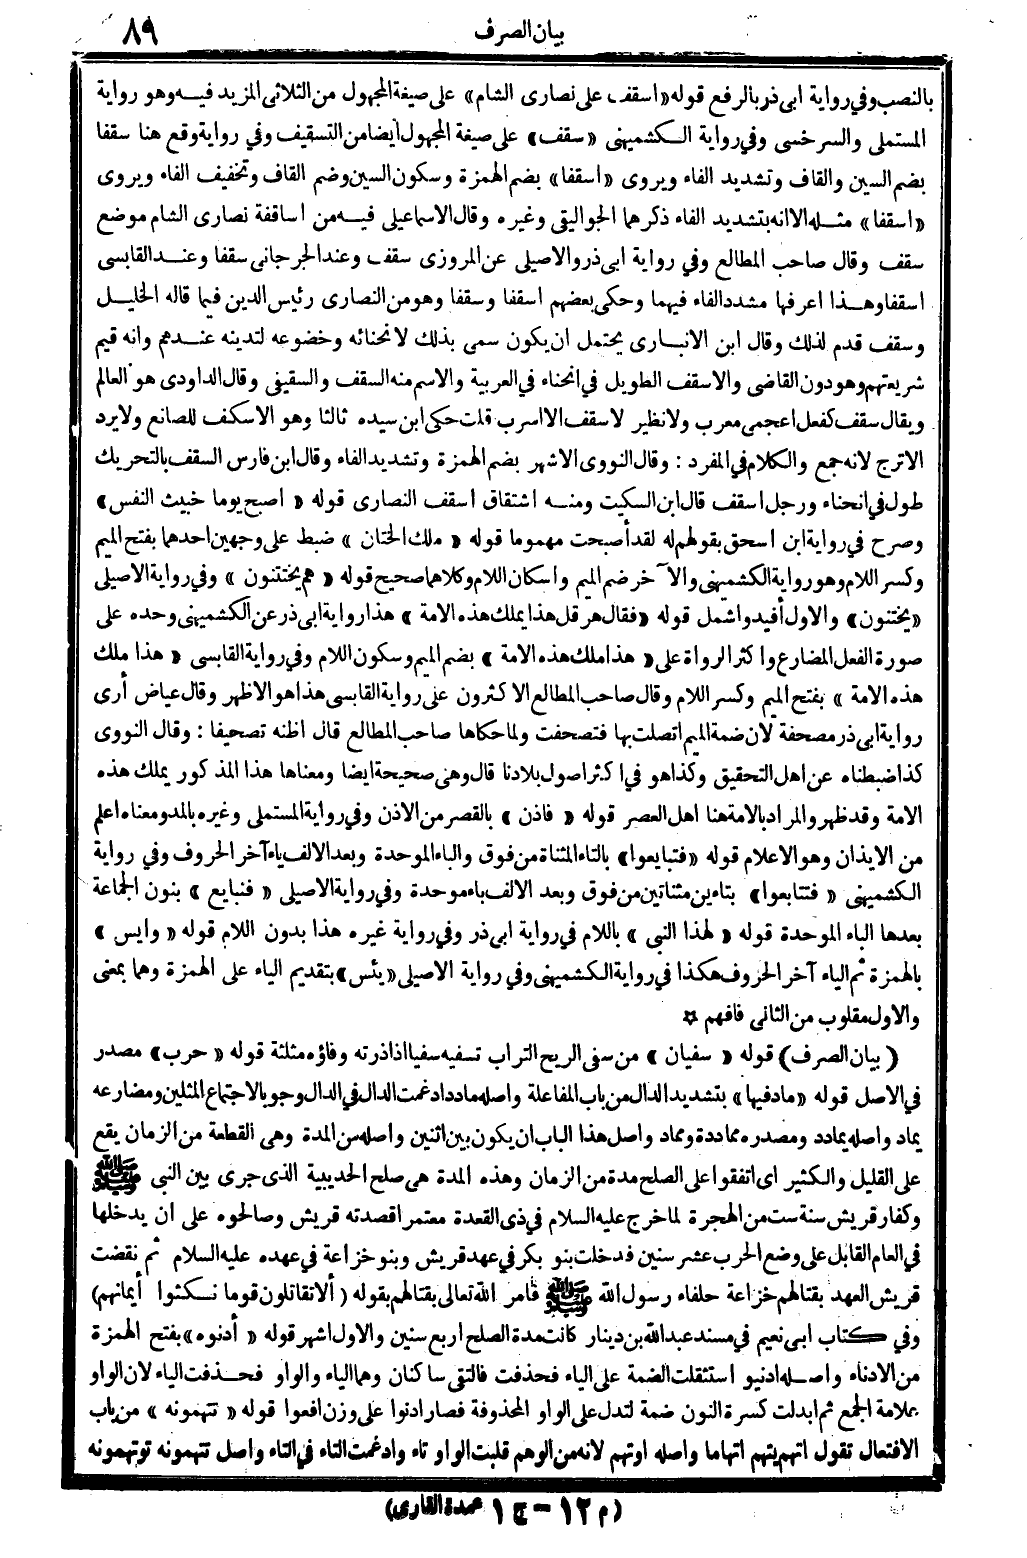 بيان الصرف ٨٩
بالنصب وفي رواية ابى ذر بالرفع قوله «اسقف على نصارى الشام» على صيغة المجهول من الثلاثى المزيد فيه وهو رواية
المستملى والسرخسى وفي رواية الكشميهنى «سقف» على صيغة المجهول أيضا من التسقيف وفي رواية وقع هنا سقفا
بضم السين والقاف وتشديد الفاء ويروى «اسقفا» بضم الهمزة وسكون السين وضم القاف وتخفيف الفاء ويروى
«اسقفا» مثله الا انه بتشديد الفاء ذكرهما الجواليقى وغيره وقال الاسماعيلى فيه من اساقفة نصارى الشام موضع
سقف وقال صاحب المطالع وفي رواية ابى ذر والاصيلى عن المروزى سقف وعند الجرجانى سقفا وعند القابسى
اسقفا وهذا اعرفها مشدد الفاء فيهما وحكى بعضهم اسقفا وسقفا وهو من النصارى رئيس الدين فيما قاله الخليل
وسقف قدم لذلك وقال ابن الانبارى يحتمل ان يكون سمى بذلك لانحنائه وخضوعه لتدينه عندهم وانه قيم
شريعتهم وهو دون القاضى والاسقف الطويل في انحناء في العربية والاسم منه السقف والسقيفى وقال الداودى هو العالم
ويقال سقف كفعل اعجمى معرب ولا نظير لاسقف الا اسرب قلت حكى ابن سيده ثالثا وهو الاسكف للصانع ولا يرد
الاترج لانه جمع والكلام في المفرد : وقال النووى الاشهر بضم الهمزة وتشديد الفاء وقال ابن فارس السقف بالتحريك
طول في انحناء ورجل اسقف قال ابن السكيت ومنه اشتقاق اسقف النصارى قوله « اصبح يوما خبيث النفس»
وصرح في رواية ابن اسحق بقولهم له لقد أصبحت مهموما قوله « ملك الختان » ضبط على وجهين احدهما بفتح الميم
وكسر اللام وهو رواية الكشميهنى والآخر ضم الميم واسكان اللام وكلاهما صحيح قوله « هم يختتنون » وفي رواية الاصيلى
«يختنون» والاول أفيد واشمل قوله «فقال هرقل هذا يملك هذه الامة » هذا رواية ابى ذر عن الكشميهنى وحده على
صورة الفعل المضارع واكثر الرواة على « هذا ملك هذه الامة » بضم الميم وسكون اللام وفي رواية القابسى « هذا ملك
هذه الامة » بفتح الميم وكسر اللام وقال صاحب المطالع الاكثرون على رواية القابسى هذا هو الاظهر وقال عياض أرى
رواية ابى ذر مصحفة لان ضمة الميم اتصلت بها فتصحفت ولما حكاها صاحب المطالع قال اظنه تصحيفا : وقال النووى
كذا ضبطناه عن اهل التحقيق وكذا هو في اكثر اصول بلادنا قال وهى صحيحة ايضا ومعناها هذا المذكور يملك هذه
الامة وقد ظهر والمراد بالامة هنا اهل العصر قوله « فاذن » بالقصر من الاذن وفي رواية المستملى وغيره بالمد ومعناه اعلم
من الايذان وهو الاعلام قوله «فتبايعوا» بالتاء المثناة من فوق والباء الموحدة وبعد الالف ياء آخر الحروف وفي رواية
الكشميهنى « فتتابعوا» بتاءين مثناتين من فوق وبعد الالف باء موحدة وفي رواية الاصيلى « فنبايع » بنون الجماعة
بعدها الباء الموحدة قوله « لهذا النبى » باللام في رواية ابى ذر وفي رواية غيره هذا بدون اللام قوله « وايس »
بالهمزة ثم الياء آخر الحروف هكذا في رواية الكشميهنى وفي رواية الاصيلى «يئس» بتقديم الياء على الهمزة وهما بمعنى
والاول مقلوب من الثانى فافهم ✡
( بيان الصرف ) قوله « سفيان » من سفى الريح التراب تسفيه سفيا اذا ذرته وفاؤه مثلثة قوله « حرب» مصدر
في الاصل قوله «ماد فيها» بتشديد الدال من باب المفاعلة واصله مادد ادغمت الدال في الدال وجوبا لاجتماع المثلين ومضارعه
يماد واصله يمادد ومصدره مماددة ومماد واصل هذا الباب ان يكون بين اثنين واصله من المدة وهى القطعة من الزمان يقع
على القليل والكثير اى اتفقوا على الصلح مدة من الزمان وهذه المدة هى صلح الحديبية الذى جرى بين النبى ﷺ
وكفار قريش سنة ست من الهجرة لما خرج عليه السلام في ذى القعدة معتمرا قصدته قريش وصالحوه على ان يدخلها
في العام القابل على وضع الحرب عشر سنين فدخلت بنو بكر في عهد قريش وبنو خزاعة في عهده عليه السلام ثم نقضت
قريش العهد بقتالهم خزاعة حلفاء رسول الله ﷺ فأمر الله تعالى بقتالهم بقوله ( ألا تقاتلون قوما نكثوا أيمانهم)
وفي كتاب ابى نعيم في مسند عبدالله بن دينار كانت مدة الصلح اربع سنين والاول اشهر قوله « أدنوه » بفتح الهمزة
من الادناء واصله ادنيو استثقلت الضمة على الياء فحذفت فالتقى ساكنان وهما الياء والواو فحذفت الياء لان الواو
علامة الجمع ثم ابدلت كسرة النون ضمة لتدل على الواو المحذوفة فصار ادنوا على وزن افعوا قوله « تتهمونه » من باب
الافتعال تقول اتهم يتهم اتهاما واصله اوتهم لانه من الوهم قلبت الواو تاء وادغمت التاء في التاء واصل تتهمونه توتهمونه
(م ١٢ – ج ١ عمدة القارى)